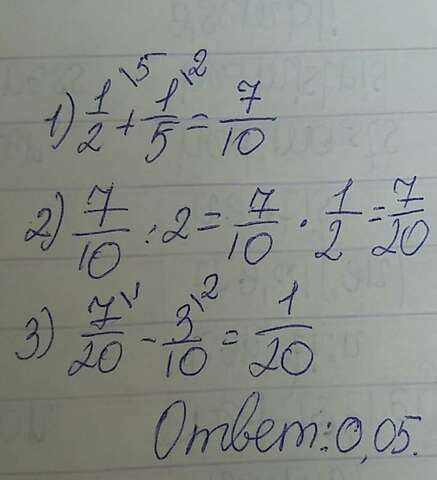 1) 1/2 \5 + 1/5 \2 = 7/10
2) 7/10 : 2 = 7/10 · 1/2 = 7/20
3) 7/20 \1 - 3/10 \2 = 1/20
Ответ: 0,05.